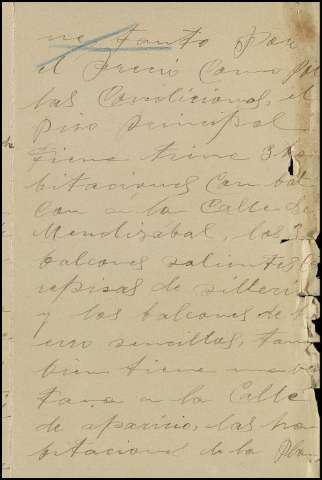 ne, tanto por
el precio como por
las Condiciones, el
Piso principal
tiene
bitaciones con bal
con a la Calle de
Mendizabal, los
balcones salientes
repisas de silleria
y los balcones de
erro sencillos, tam
bien tiene
tana a la Calle
de aparicio, las ha
bitaciones de la